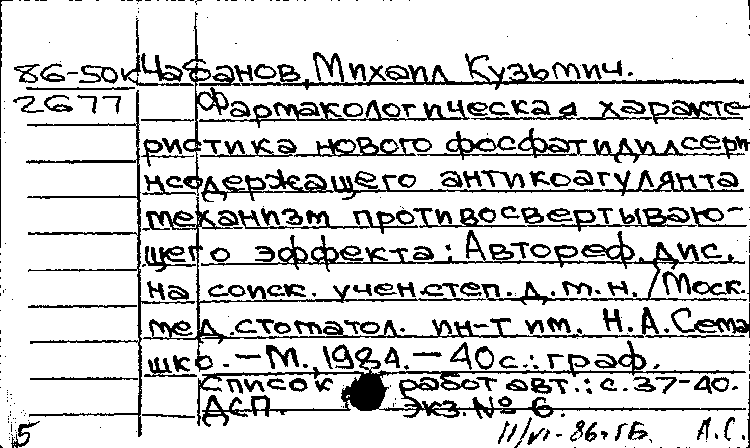 86-50к Чабанов, Михаил Кузьмич.
2677 Фармакологическая характе-
ристика нового фосфатидилсери
нсодержащего антикоагулянта
механизм противосвертываю-
щего эффекта: Автореф. дис.
на соиск. учен. степ. д.м.н. / Моск.
мед. стоматол. ин-т им. Н.А. Сема
шко. — М., 1984. — 40 с.: граф.
Список работ авт.: с. 37-40.
ДСП. Экз. № 6.
5 11/VI-86-
Л.С.